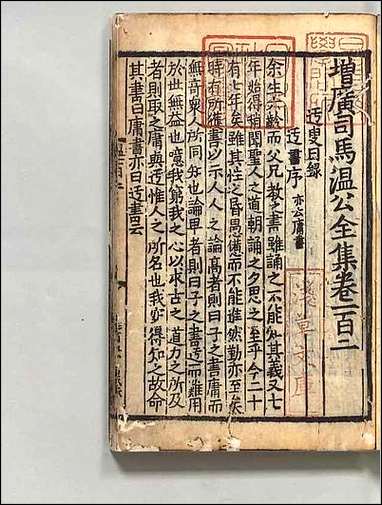 增廣司馬温公全集卷一百二
迂叟日録
迂書序 亦云庸書
余生六齡而父兄教之書雖誦之不能知其義又七
年始得稍聞聖人之道朝誦之夕思之至乎今二十
有七年矣雖其性之昏愚憊而不能進然勤亦至矣
時有所獲書以示人人之論高者則曰子之書庸而
無奇衆人所同知也論卑者則曰子之書迂而難用
於世無益也噫我窮我之心以求古之道力之所及
者則取之庸與迂惟人之所名也我亦得知之故命
其書曰庸書亦曰迂書云
淺草文庫